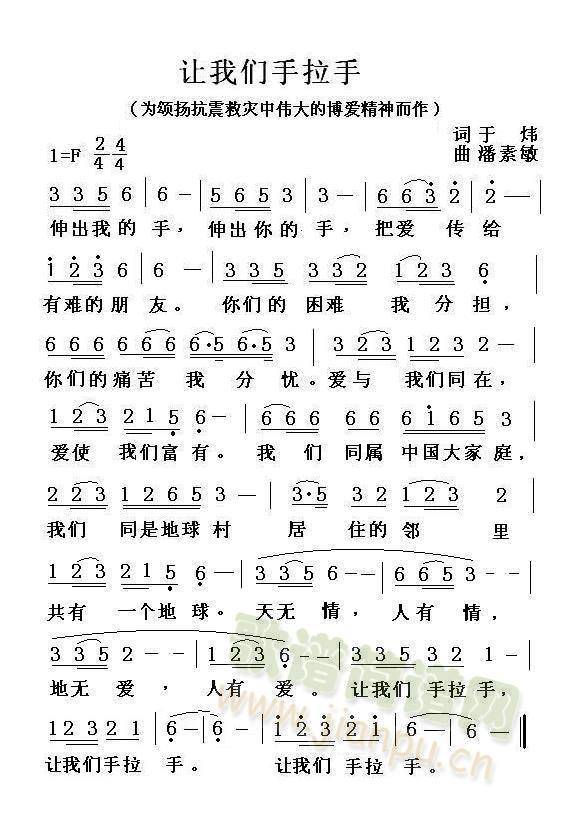 让我们手拉手
（为颂扬抗震救灾中伟大的博爱精神而作）
词于 炜
1=F 2/4 4/4 曲潘素敏
3 3 5 6 | 6 - | 5 6 5 3 | 3 - | 6 6 3 2 | 2 - |
伸出我的 手， 伸出你的 手， 把爱 传 给
1 2 3 6 | 6 - | 3 3 5 3 2 | 1 2 3 6 |
有难的朋 友。 你们的 困难 我 分 担，
6 6 6 6 6 6 | 6·5 6·5 3 | 3 2 3 1 2 | 2 - |
你们的痛苦 我 分 忧。爱与 我们同在，
1 2 3 2 1 5 | 6 - | 6 6 6 6 6 | 6 1 6 5 3 |
爱使 我们富 有。 我 们 同属 中国大家 庭，
2 2 3 1 2 6 5 3 | 3·5 3 2 1 2 3 2 |
我们 同是地球 村 居 住的 邻 里
1 2 3 2 1 5 | 6 - | 3 3 5 6 - - | 6 6 5 3 - - |
共有 一个地 球。 天无 情， 人有 情，
3 3 5 2 - - | 1 2 3 6 - - | 3 3 5 3 2 | 1 - - |
地无 爱， 人有 爱。 让我们 手拉 手，
1 2 3 2 1 | 6 - | 6 - | 1 2 3 2 1 | 6 - | 6 - ‖
让我们手拉 手。 让我们 手拉 手。
歌谱简谱网
www.jianpu.cn